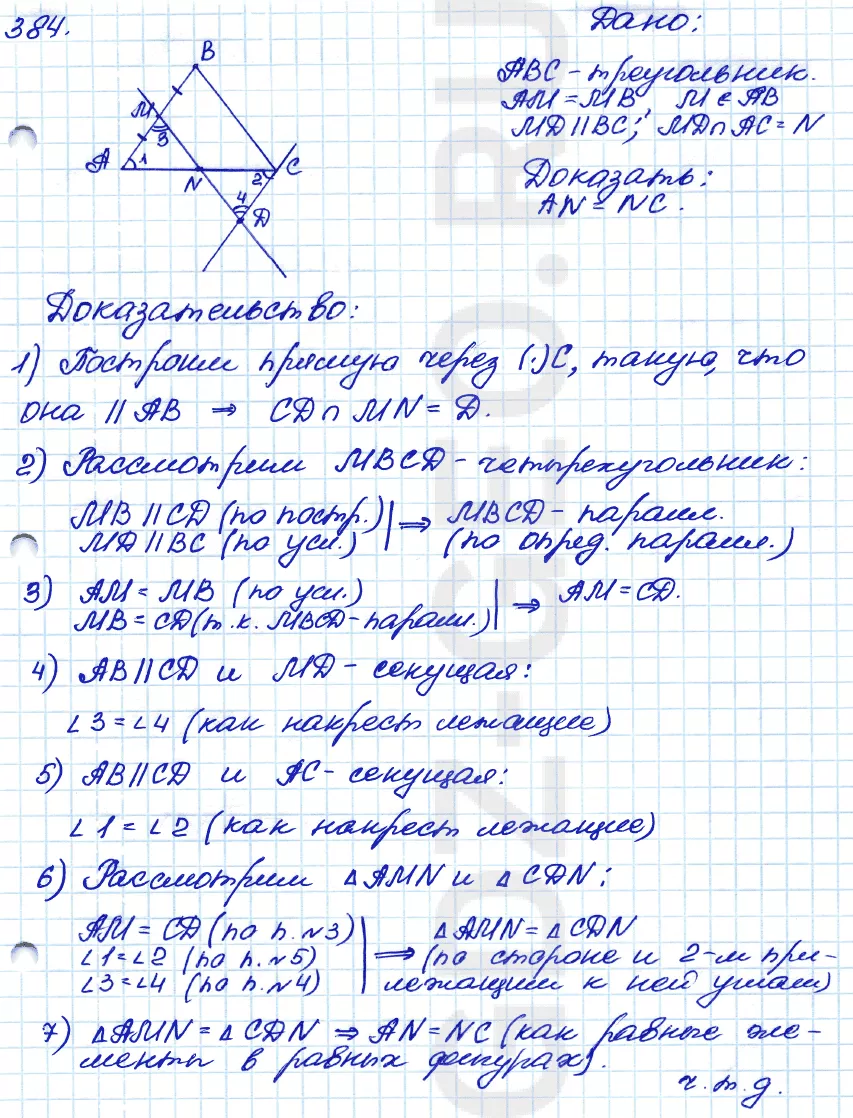 384.
Дано:
ABC - треугольник.
AM = MB, M ∈ AB
MD || BC; MD ∩ AC = N
Доказать:
AN = NC.
B
M
3
A
1
N
2
C
4
D
Доказательство:
1) Построим прямую через (·)C, такую, что
она || AB ⇒ CD ∩ MN = D.
2) Рассмотрим MBCD - четырехугольник:
MB || CD (по постр.) | ⇒ MBCD - паралл.
MD || BC (по усл.) | (по опред. паралл.)
3) AM = MB (по усл.) | ⇒ AM = CD.
MB = CD (т.к. MBCD - паралл.)
4) AB || CD и MD - секущая:
∠3 = ∠4 (как накрест лежащие)
5) AB || CD и AC - секущая:
∠1 = ∠2 (как накрест лежащие)
6) Рассмотрим △AMN и △CDN:
AM = CD (по п. №3) | △AMN = △CDN
∠1 = ∠2 (по п. №5) | ⇒ (по стороне и 2-м при-
∠3 = ∠4 (по п. №4) | лежащим к ней углам)
7) △AMN = △CDN ⇒ AN = NC (как равные эле-
менты в равных фигурах).
ч.т.д.
GDZ-GEO.RU